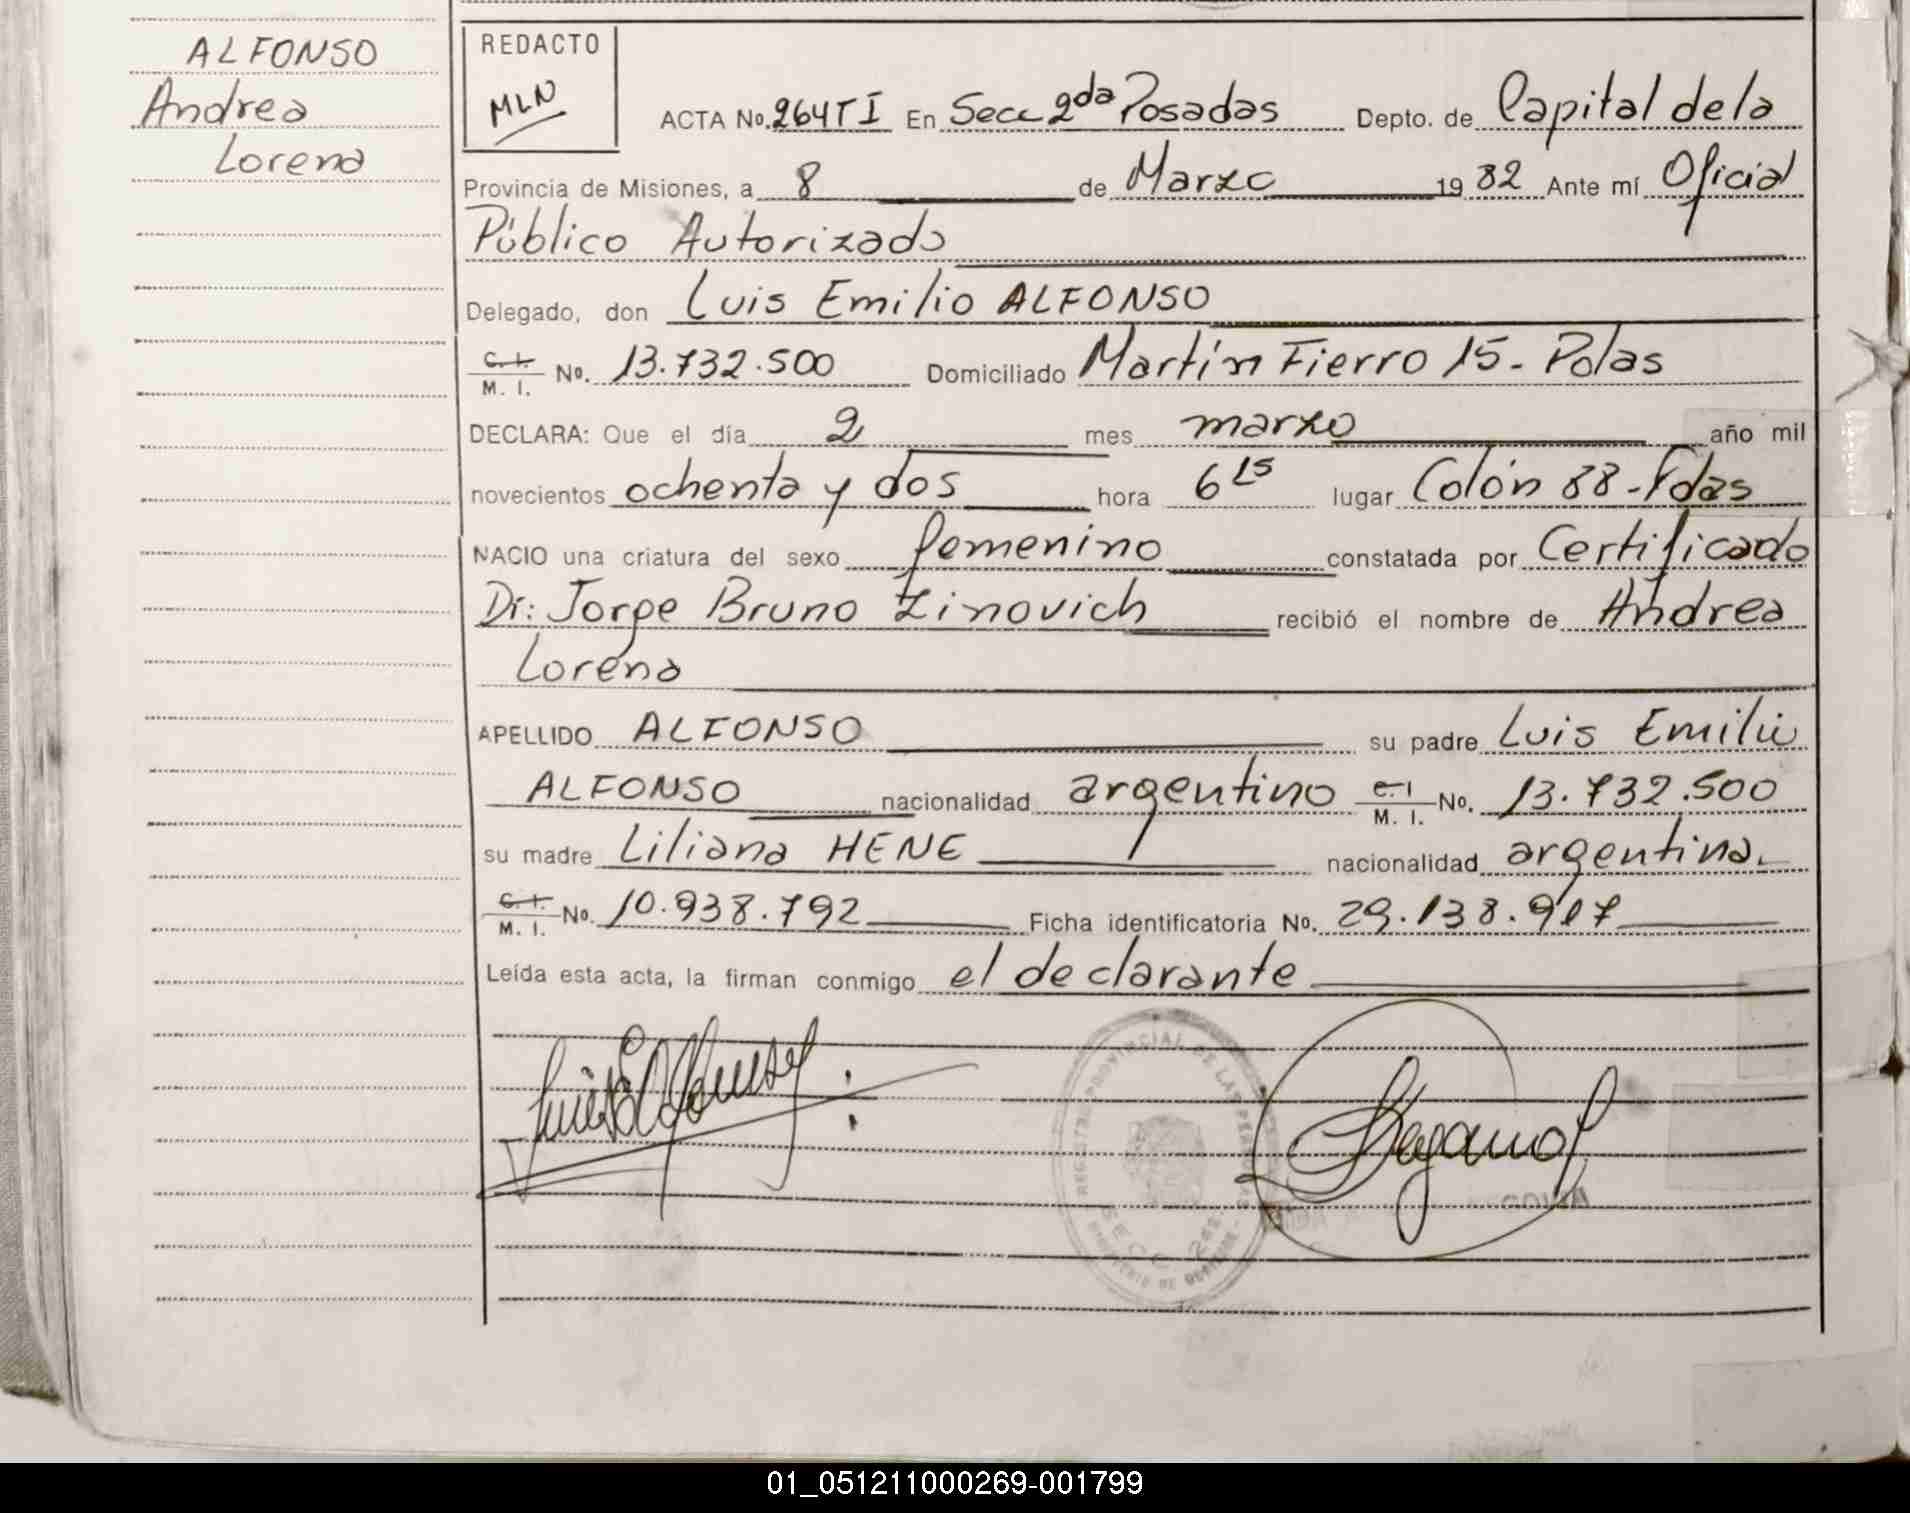 ALFONSO
Andrea
Lorena
REDACTO
MLN
ACTA No. 264 T I En Secc 2da Posadas Depto. de Capital de la
Provincia de Misiones, a 8 de Marzo 19 82 Ante mí Oficial
Público Autorizado
Delegado, don Luis Emilio ALFONSO
C. I. M. I. No. 13.732.500 Domiciliado Martín Fierro 15 - Pdas
DECLARA: Que el día 2 mes marzo año mil
novecientos ochenta y dos hora 6 15 lugar Colón 88 - Pdas
NACIO una criatura del sexo femenino constatada por Certificado
Dr: Jorge Bruno Zinovich recibió el nombre de Andrea
Lorena
APELLIDO ALFONSO su padre Luis Emilio
ALFONSO nacionalidad argentino C. I M. I. No. 13.732.500
su madre Liliana HENE nacionalidad argentina
C. I. M. I. No. 10.938.792 Ficha identificatoria No. 29.138.917
Leída esta acta, la firman conmigo el declarante
REGISTRO PROVINCIAL DE LAS PERSONAS
SECC. 2da.
MINISTERIO DE GOBIERNO
01_051211000269-001799